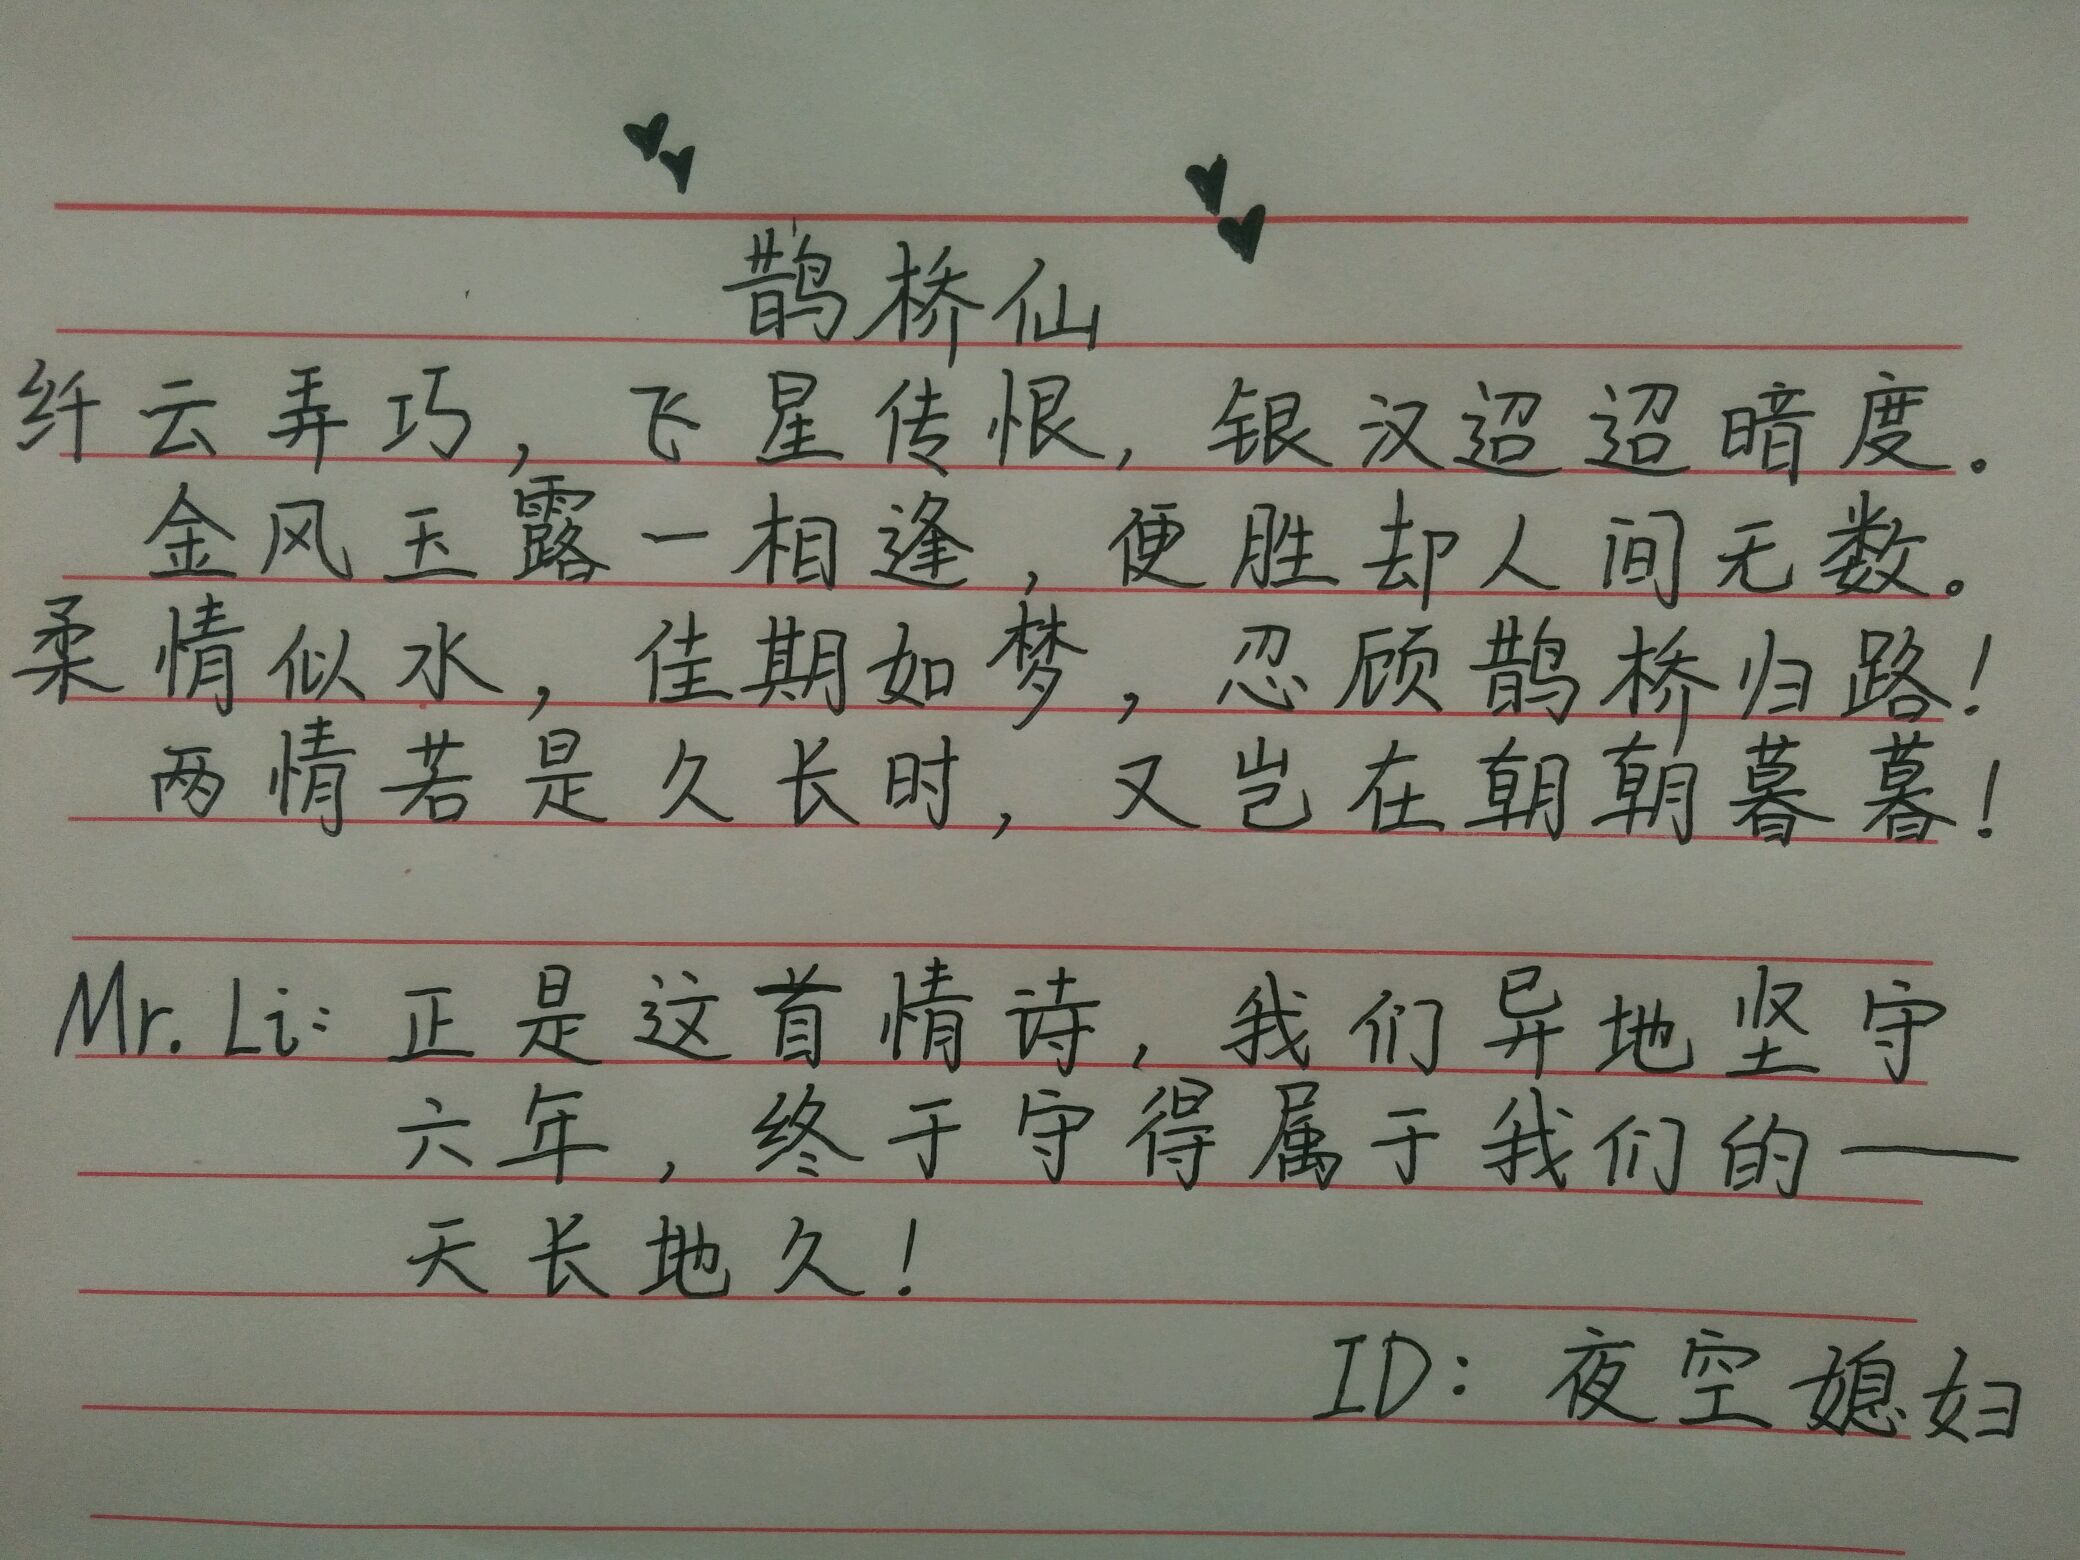 鹊桥仙
纤云弄巧，飞星传恨，银汉迢迢暗度.
金风玉露一相逢，便胜却人间无数。
柔情似水，佳期如梦，忍顾鹊桥归路！
两情若是久长时，又岂在朝朝暮暮！
Mr. Li：正是这首情诗，我们异地坚守
六年，终于守得属于我们的——
天长地久！
ID：夜空媳妇